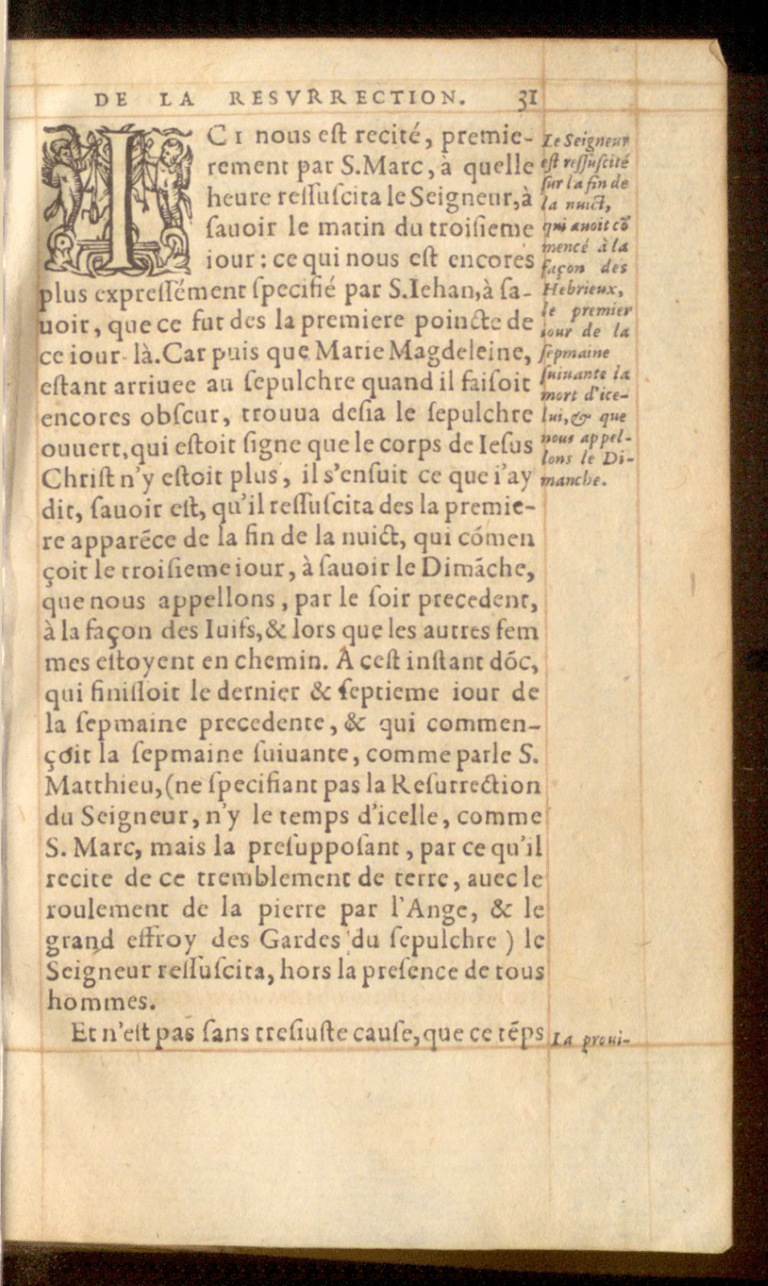 DE LA RESVRRECTION. 31
ICI nous eſt recité, premie-
rement par S.Marc, à quelle
heure reſſuſcita le Seigneur, à
ſauoir le matin du troiſieme
iour: ce qui nous eſt encores
plus expreſſément ſpecifié par S.Iehan, à ſa-
uoir, que ce fut des la premiere poincte de
ce iour-là. Car puis que Marie Magdeleine,
eſtant arriuee au ſepulchre quand il faiſoit
encores obſcur, trouua deſia le ſepulchre
ouuert, qui eſtoit ſigne que le corps de Ieſus
Chriſt n'y eſtoit plus, il s'enſuit ce que i'ay
dit, ſauoir eſt, qu'il reſſuſcita des la premie-
re apparēce de la fin de la nuict, qui cómen
çoit le troiſieme iour, à ſauoir le Dimāche,
que nous appellons, par le ſoir precedent,
à la façon des Iuifs, & lors que les autres fem
mes eſtoyent en chemin. A ceſt inſtant dóc,
qui finiſſoit le dernier & ſeptieme iour de
la ſepmaine precedente, & qui commen-
çoit la ſepmaine ſuiuante, comme parle S.
Matthieu, (ne ſpecifiant pas la Reſurrection
du Seigneur, n'y le temps d'icelle, comme
S. Marc, mais la preſuppoſant, par ce qu'il
recite de ce tremblement de terre, auec le
roulement de la pierre par l'Ange, & le
grand effroy des Gardes du ſepulchre) le
Seigneur reſſuſcita, hors la preſence de tous
hommes.
Et n'eſt pas ſans treſiuſte cauſe, que ce tēps
Le Seigneur
eſt reſſuſcité
ſur la fin de
la nuict,
qui auoit cō
mencé à la
façon des
Hebrieux,
le premier
iour de la
ſepmaine
ſuiuante la
mort d'ice-
lui, & que
nous appel-
lons le Di-
manche.
La proui-